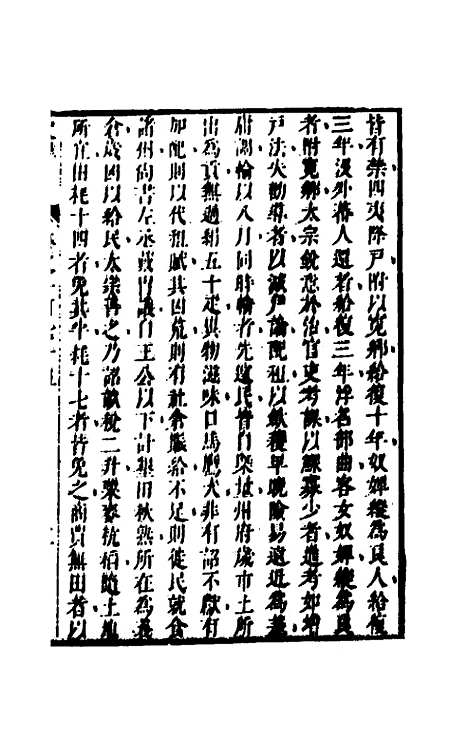 皆有禁四夷降戸附以寬鄉給復十年奴婢縱爲良人給復
三年没外蕃人還者給復三年浮名部曲客女奴婢縱爲良
者附寬鄉太宗銳意於治官吏考課以鰥寡少者進考如增
戸法失勸導者以減戸論配租以斂穫早晚險易遠近爲差
庸調輸以八月同時輸者先遠民皆自槩量州府歲市土所
出爲貢無過絹五十疋異物滋味口馬鷹犬非有詔不獻有
加配則以代租賦其凶荒則有社倉賑給不足則徙民就食
諸州尚書左丞戴胄議自王公以下計墾田秋熟所在爲義
倉歲凶以給民太宗善之乃詔畝稅二升粟麥秔稻隨土地
所宜田耗十四者免其半耗十七者皆免之商賈無田者以